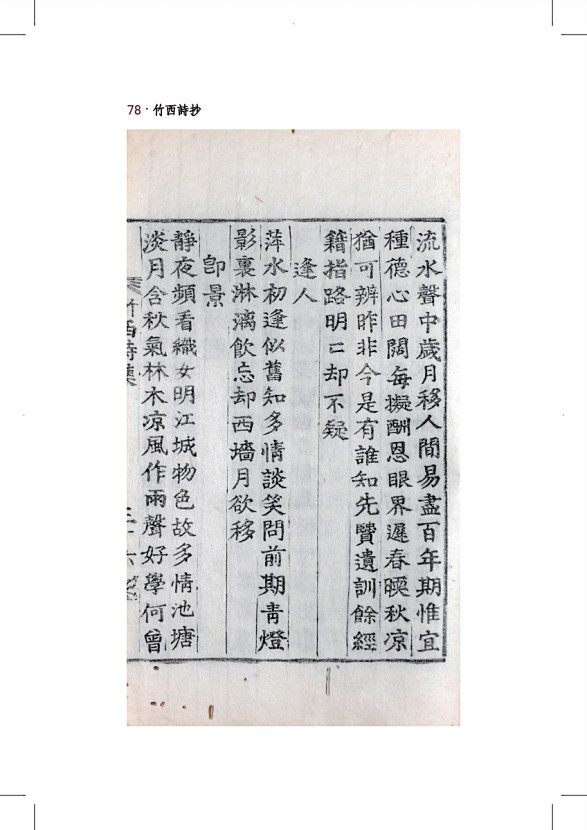 78 · 竹西詩抄
流水聲中歲月移人間易盡百年期惟宜
種德心田闊每擬酬恩眼界遲春暖秋凉
猶可辨昨非今是有誰知先賢遺訓餘經
籍指路明〻却不疑
逢人
萍水初逢似舊知多情談笑問前期靑燈
影裏淋漓飮忘却西墻月欲移
卽景
靜夜頻看織女明江城物色故多情池塘
淡月含秋氣林木凉風作雨聲好學何曾
竹西詩集